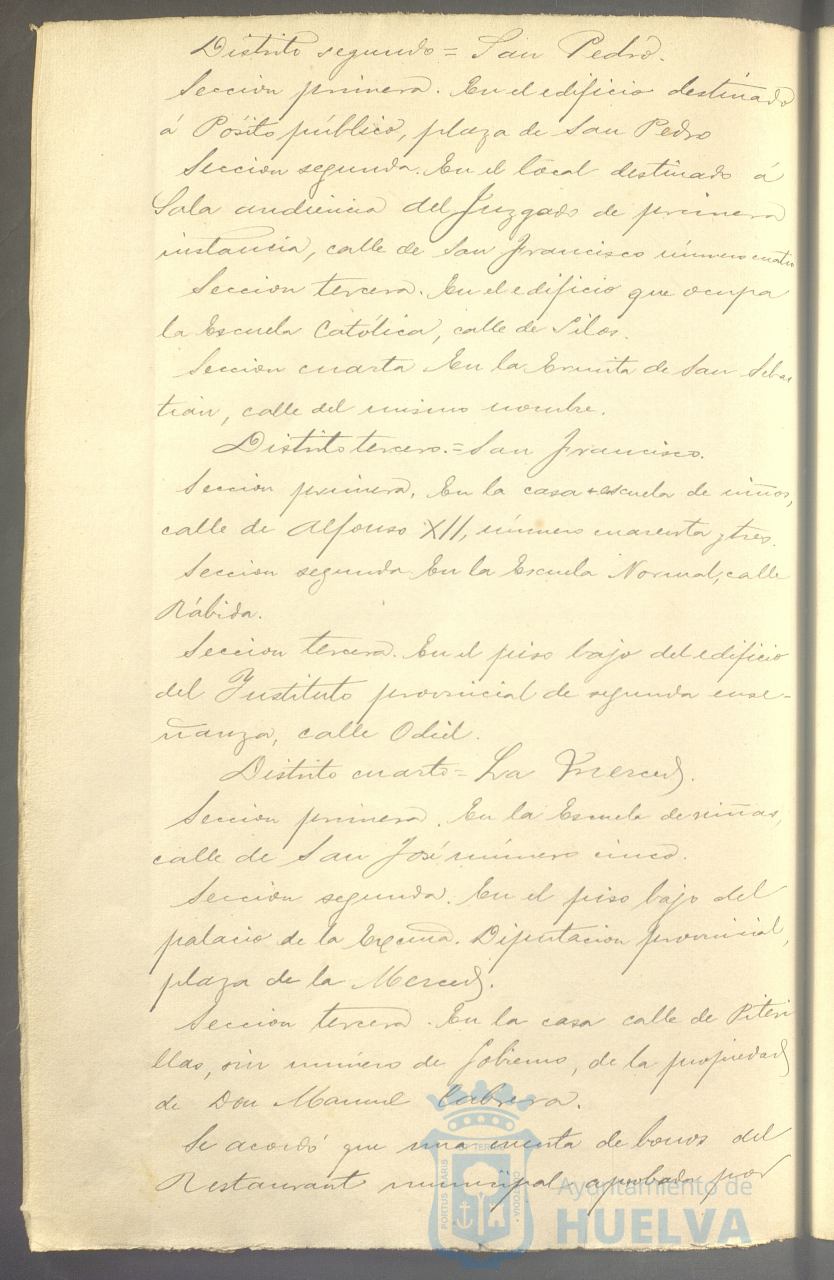 Distrito segundo = San Pedro.
Sección primera. En el edificio destinado
á Pósito público, plaza de San Pedro
Sección segunda. En el local destinado á
Sala audiencia del Juzgado de primera
instancia, calle de San Francisco número cuatro
Sección tercera. En el edificio que ocupa
la Escuela Católica, calle de Silos.
Sección cuarta En la Ermita de San Sebas
tián, calle del mismo nombre.
Distrito tercero. = San Francisco.
Sección primera. En la casa escuela de niños,
calle de Alfonso XII, número cuarenta y tres.
Sección segunda En la Escuela Normal, calle
Rábida.
Sección tercera. En el piso bajo del edificio
del Instituto provincial de segunda ense-
ñanza, calle Odiel.
Distrito cuarto = La Merced.
Sección primera. En la Escuela de niñas,
calle de San José número cinco.
Sección segunda. En el piso bajo del
palacio de la Excma. Diputación provincial,
plaza de la Merced.
Sección tercera. En la casa calle de Piteri
llas, sin número de Gobierno, de la propiedad
de Don Manuel Cabrera.
Se acordó que una cuenta de bonos del
Restaurant municipal, aprobada por
Ayuntamiento de
HUELVA